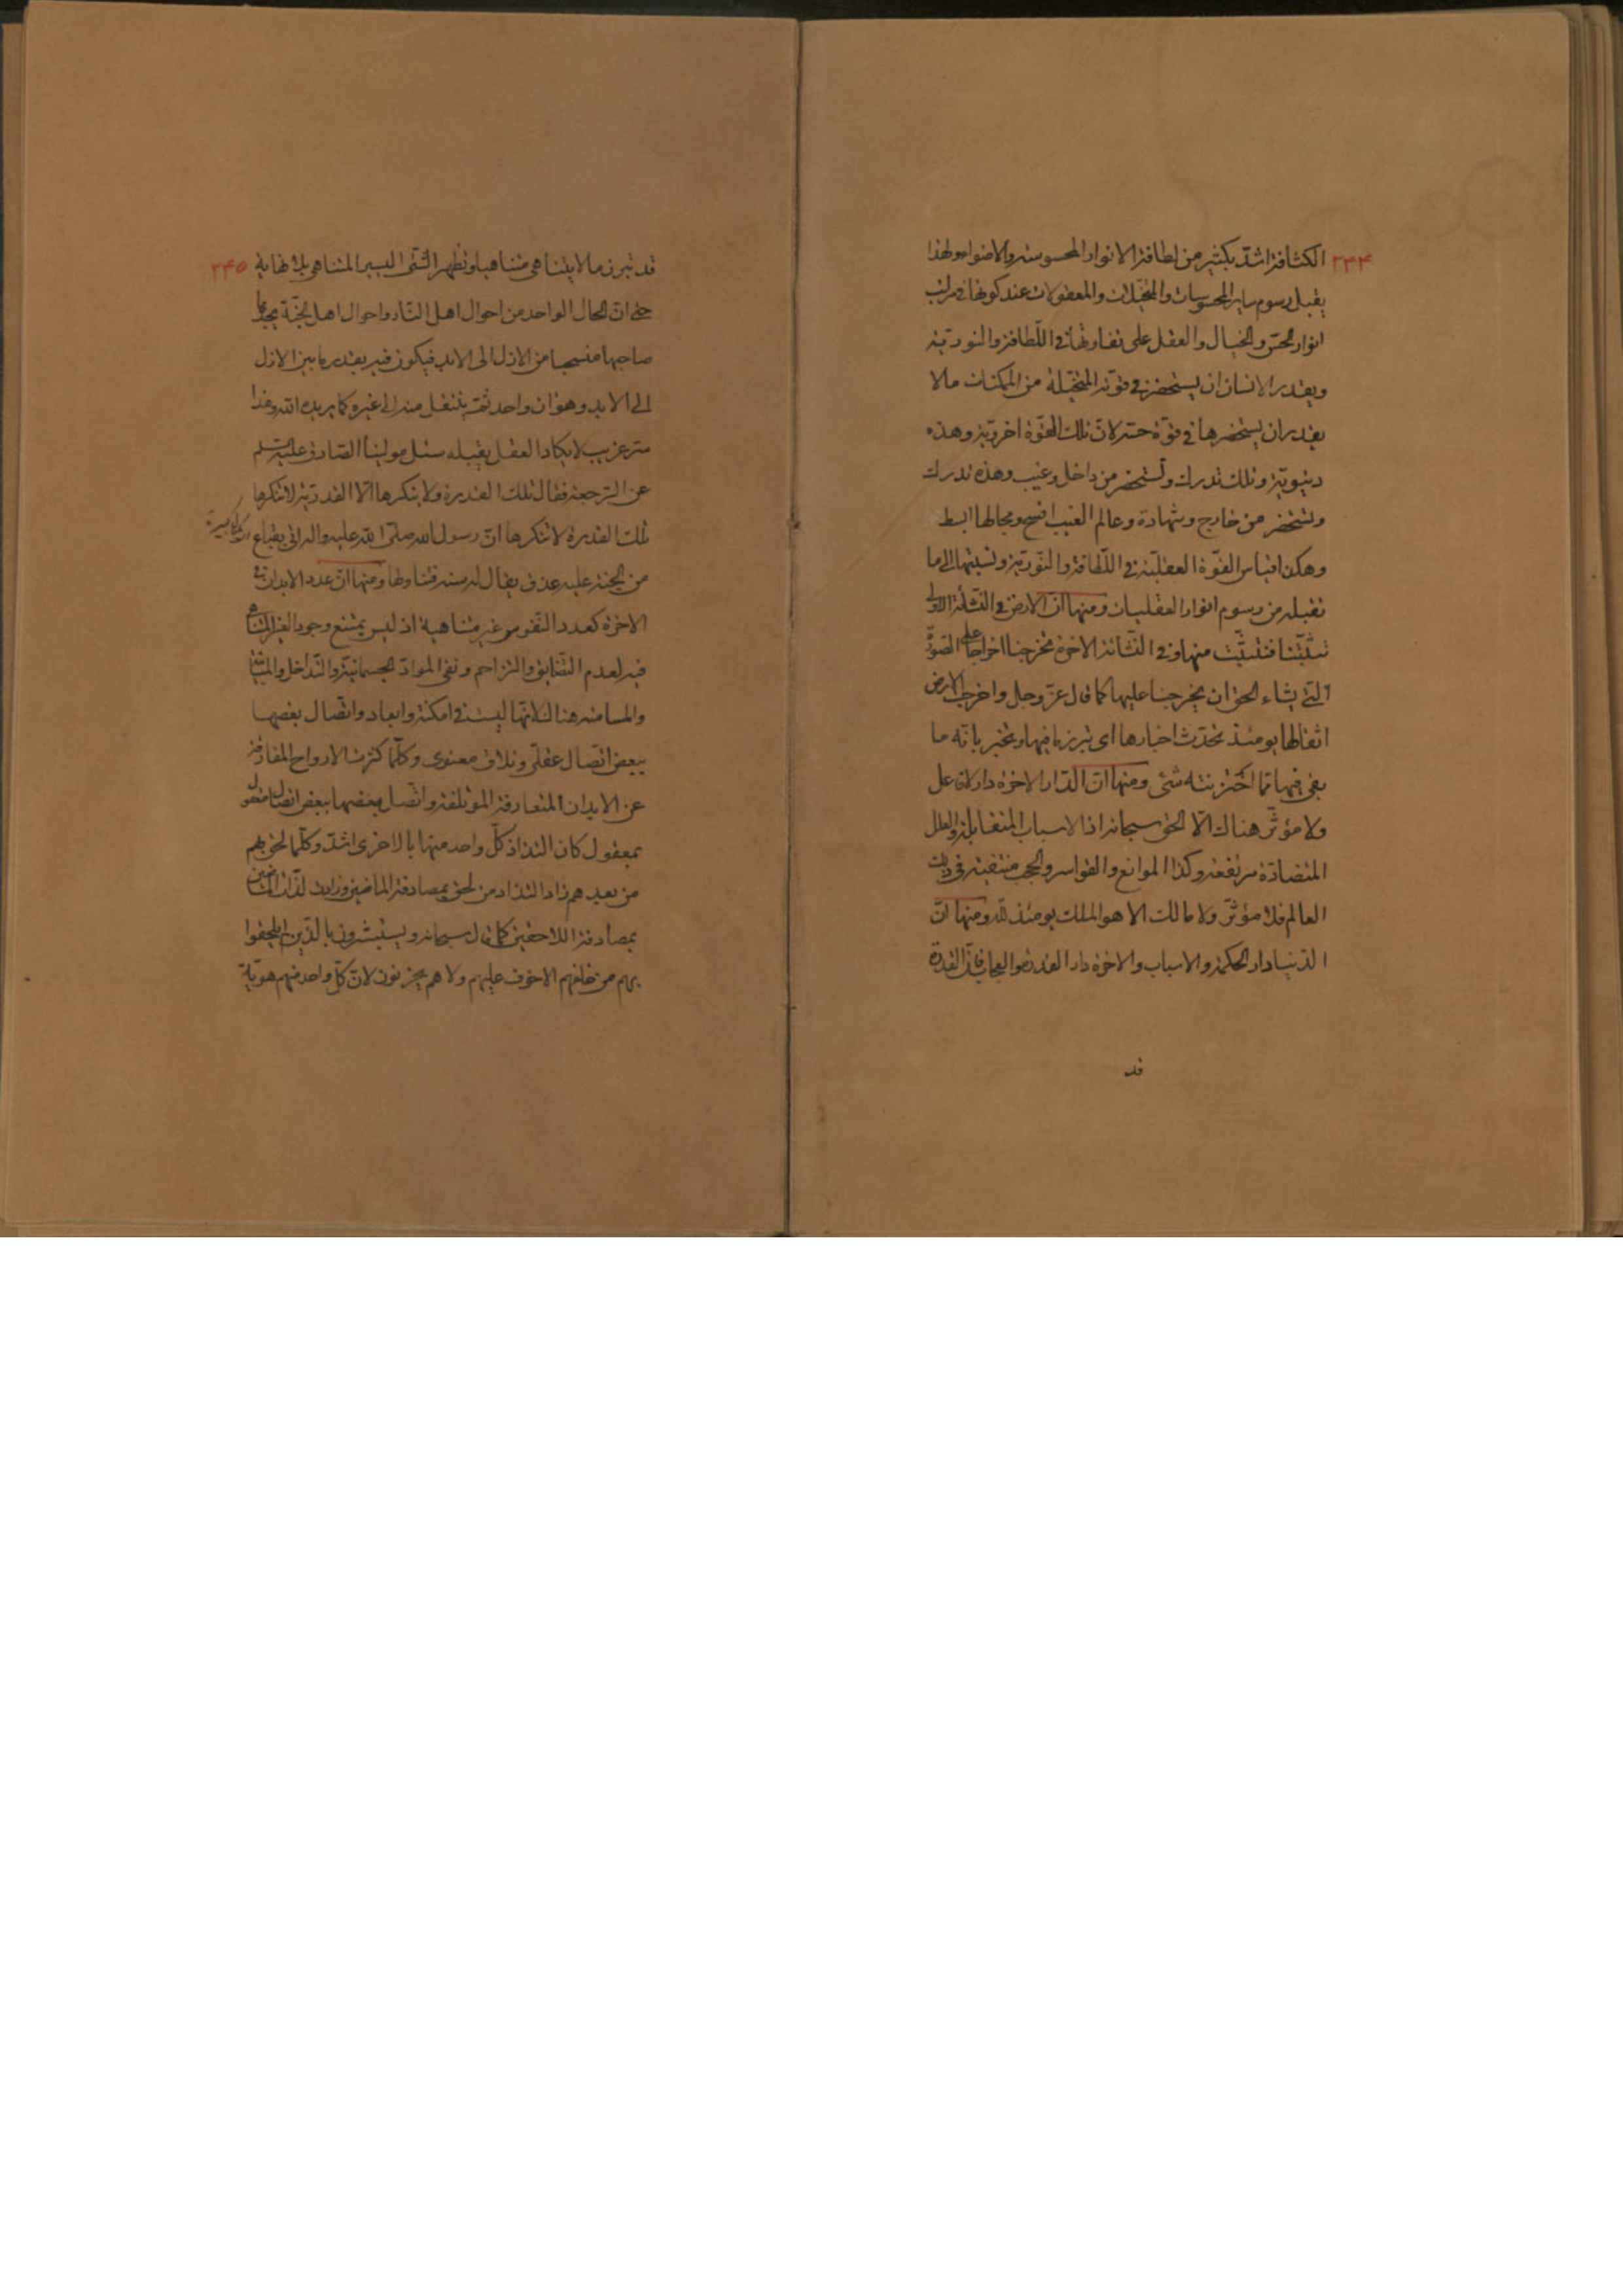 ٢٤٤
الكثافة اشدّ بكثير من لطافة الانوار المحسوسة والاضواء ولهذا
يقبل رسوم ساير المحسوسات والمتخيلات والمعقولات عند كونها فى مراتب
انوار الحسّ والخيال والعقل على تفاوتها فى اللّطافة والنوريّة
ويقدر الانسان ان يستحضر فى قوّته المتخيّلة من الممكنات ما لا
يقدر ان يستحضرها فى قوّة حسّه لانّ تلك القوّة اخرويّة وهذه
دنيويّة وتلك تدرك وتستحضر من داخل وغيب وهذه تدرك
وتستحضر من خارج وشهادة وعالم الغيب افسح ومجالها ابسط
وهكذا قياس القوّة العقليّة فى اللّطافة والنّوريّة ونسبتها الى ما
تقبله من رسوم انوار العقليات ومنها انّ الارض فى النّشأة الاولى
تنبّتنا فننبت منها وفى النّشأة الاخرة تخرجنا اخراجا على الصّورة
الّتى يشاء الحق ان يخرجنا عليها كما قال عزّ وجل واخرجت الارض
اثقالها يومئذ تحدّث اخبارها اى تبرز ما فيها وتخبر بانّه ما
بقى فيها ممّا اختزنته شئى ومنها انّ الدّار الاخرة دار لا فاعل
ولا مؤثّر هناك الّا الحق سبحانه اذ الاسباب المتقابلة والعلل
المتضادّة مرتفعة وكذا الموانع والقواسر والحجب منتفية فى ذلك
العالم فلا مؤثّر ولا مالك الا هو الملك يومئذ للّه ومنها انّ
الدّنيا دار الحكمة والاسباب والاخرة دار القدرة والعجاب فانّ القدرة
قد
٢٤٥
قد تبرز ما لا يتناهى متناهيا وتظهر الشّئى اليسير المتناهى بلا نهاية
حتى انّ الحال الواحد من احوال اهل النّار واحوال اهل الجنّة يجدها
صاحبها منسحبا من الازل الى الابد فيكون فيه بقدر ما بين الازل
الى الابد وهو ان واحد ثمّ ينتقل منه الى غيره كما يريده اللّه وهذا
سرّ غريب لا يكاد العقل يقبله سئل مولينا الصّادق عليه السّلم
عن الرّجعة فقال تلك القدرة ولا ينكرها الّا القدريّة لا تنكرها
تلك القدرة لا تنكرها انّ رسول اللّه صلّى اللّه عليه واله اتى بقناع
من الجنّة عليه عذق يقال له سنه فتناولها ومنها انّ عدد الابدان فى
الاخرة كعدد النّفوس غير متناهية اذ ليس يمتنع وجود الغير المتناهى
فيه لعدم التّضايق والتزاحم ونفى الموادّ الجسمانيّة والتّداخل والمباينة
والمسامتة هناك لانّها ليست فى امكنة وابعاد واتصال بعضها
ببعض اتّصال عقلّى وتلاق معنوى وكلّما كثرت الارواح المفارقة
عن الابدان المتعارفة المؤتلفة واتّصل بعضها ببعض اتصال معقول
بمعقول كان التذاذ كلّ واحد منها بالاخرى اشدّ وكلّما لحق بهم
من بعدهم زاد التذاذ من لحق بمصادفة الماضين وزادت لذّات الماضين
بمصادفة اللاحقين كما قال سبحانه ويستبشرون بالّذين لم يلحقوا
بهم من خلفهم الا خوف عليهم ولا هم يحزنون لانّ كلّ واحد منهم هويّة